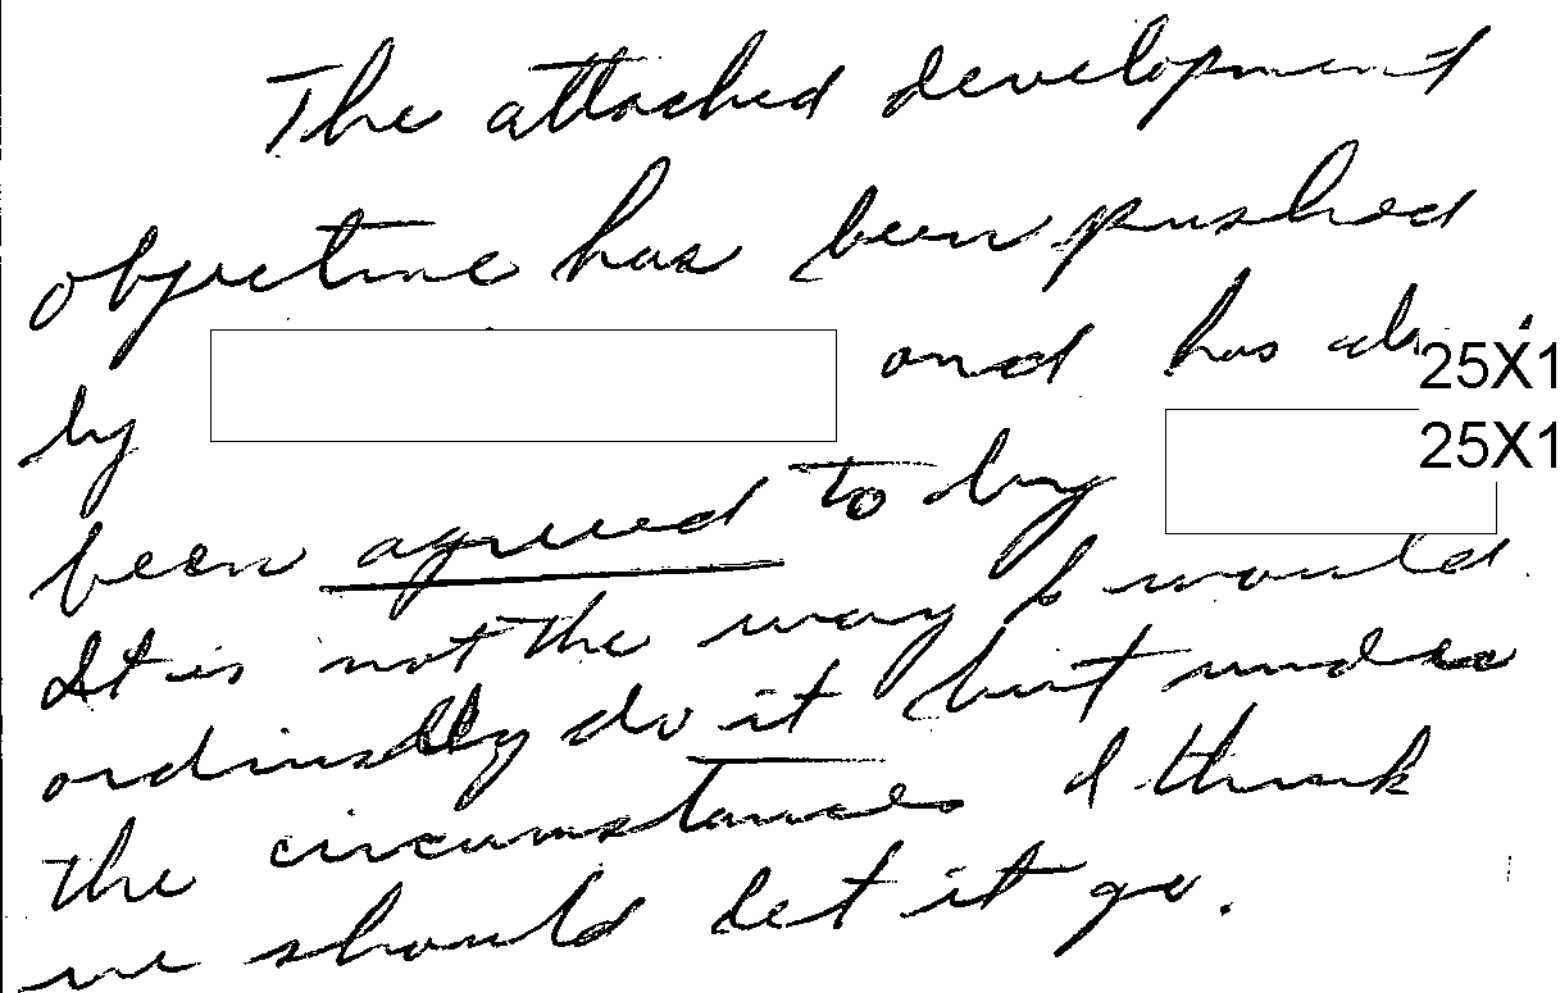 The attached development
objective has been pushed
by and has 25X1
25X1
been agreed to by
It is not the way I would
ordinally do it but under
the circumstances I think
we should let it go.